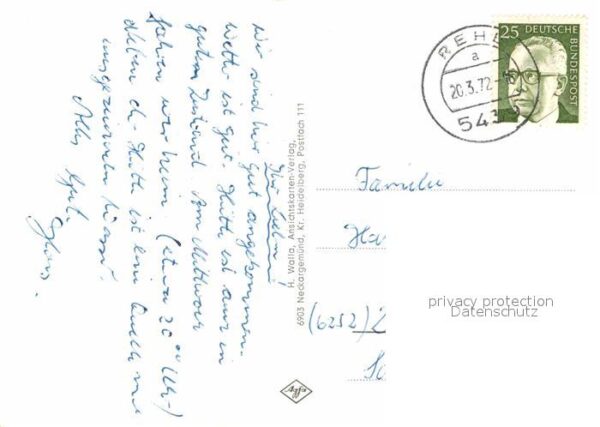 Ihr Lieben!
Wir sind hier gut angekommen.
Wetter ist gut. Hütte ist auch in
gutem Zustand. Am Mittwoch
fahren wir heim (etwa 20⁰⁰ Uhr)
ist kein
Alles Gute
H. Walla, Ansichtskarten-Verlag,
6903 Neckargemünd, Kr. Heidelberg, Postfach 111
Agfa
REHE
a
20.3.72
543
25
DEUTSCHE
BUNDESPOST
Familie
Ha
(6252)
privacy protection
Datenschutz